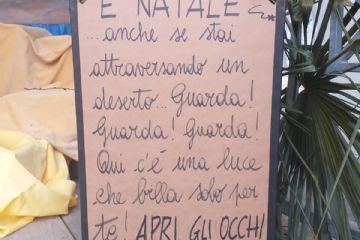 È NATALE
...anche se stai
attraversando un
deserto... Guarda!
Guarda! Guarda!
Qui c'è una luce
che brilla solo per
te! APRI GLI OCCHI